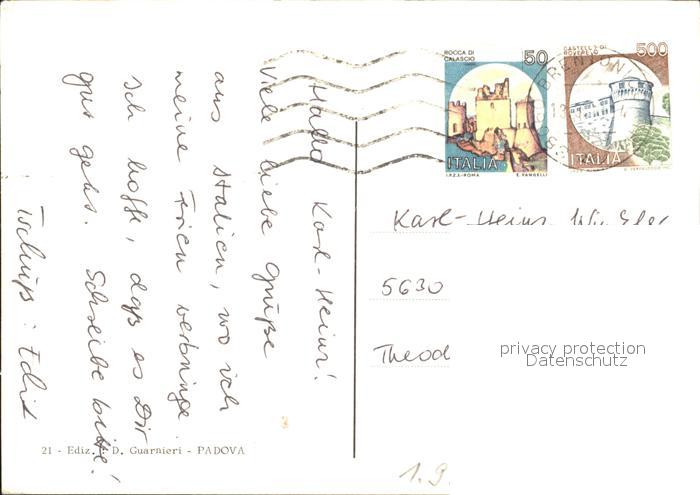 Hallo Karl-Heinz!
Viele liebe Grüße
aus Italien, wo ich
meine Ferien verbringe.
Ich hoffe, daß es Dir
gut geht. Schreibe bitte!
Tschüß: Edit
ROCCA DI
CALASCIO
50
ITALIA
I.P.Z.S.-ROMA E. VANGELLI
CASTELLO DI
ROVERETO
500
ITALIA
BRENTONICO
Karl-Heinz
5630
Theod
privacy protection
Datenschutz
21 - Ediz. D. Guarnieri - PADOVA
1.9.